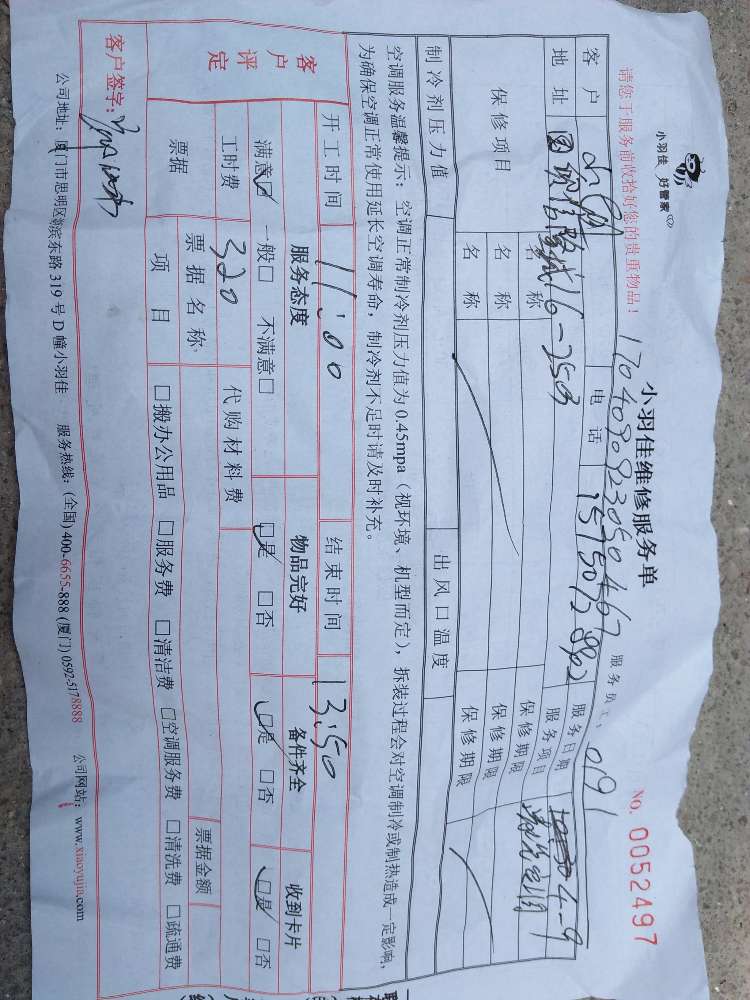 小羽佳 好管家
小羽佳维修服务单
NO. 0052497
请您于服务前收拾好您的贵重物品！
服务员工： 019
客户 电话 服务日期 4-9
地址 16-2503 服务项目
保修项目 名称 保修期限
名称 保修期限
名称 保修期限
制冷剂压力值 出风口温度
空调服务温馨提示：空调正常制冷剂压力值为0.45mpa（视环境、机型而定），拆装过程会对空调制冷或制热造成一定影响，
为确保空调正常使用延长空调寿命，制冷剂不足时请及时补充。
开工时间 11:00 结束时间 13:50
客户评定 服务态度 物品完好 备件齐全 收到卡片
满意☑ 一般□ 不满意□ ☑是 □否 ☑是 □否 ☑是 □否
工时费 320 代购材料费
票据 票据名称： 票据金额
项目 □搬办公用品 □服务费 □清洁费 □空调服务费 □清洗费 □疏通费
客户签字：
公司地址：厦门市思明区湖滨东路319号D幢小羽佳 服务热线：(全国) 400-6655-888 (厦门) 0592-5178888 公司网站：www.xiaoyujia.com